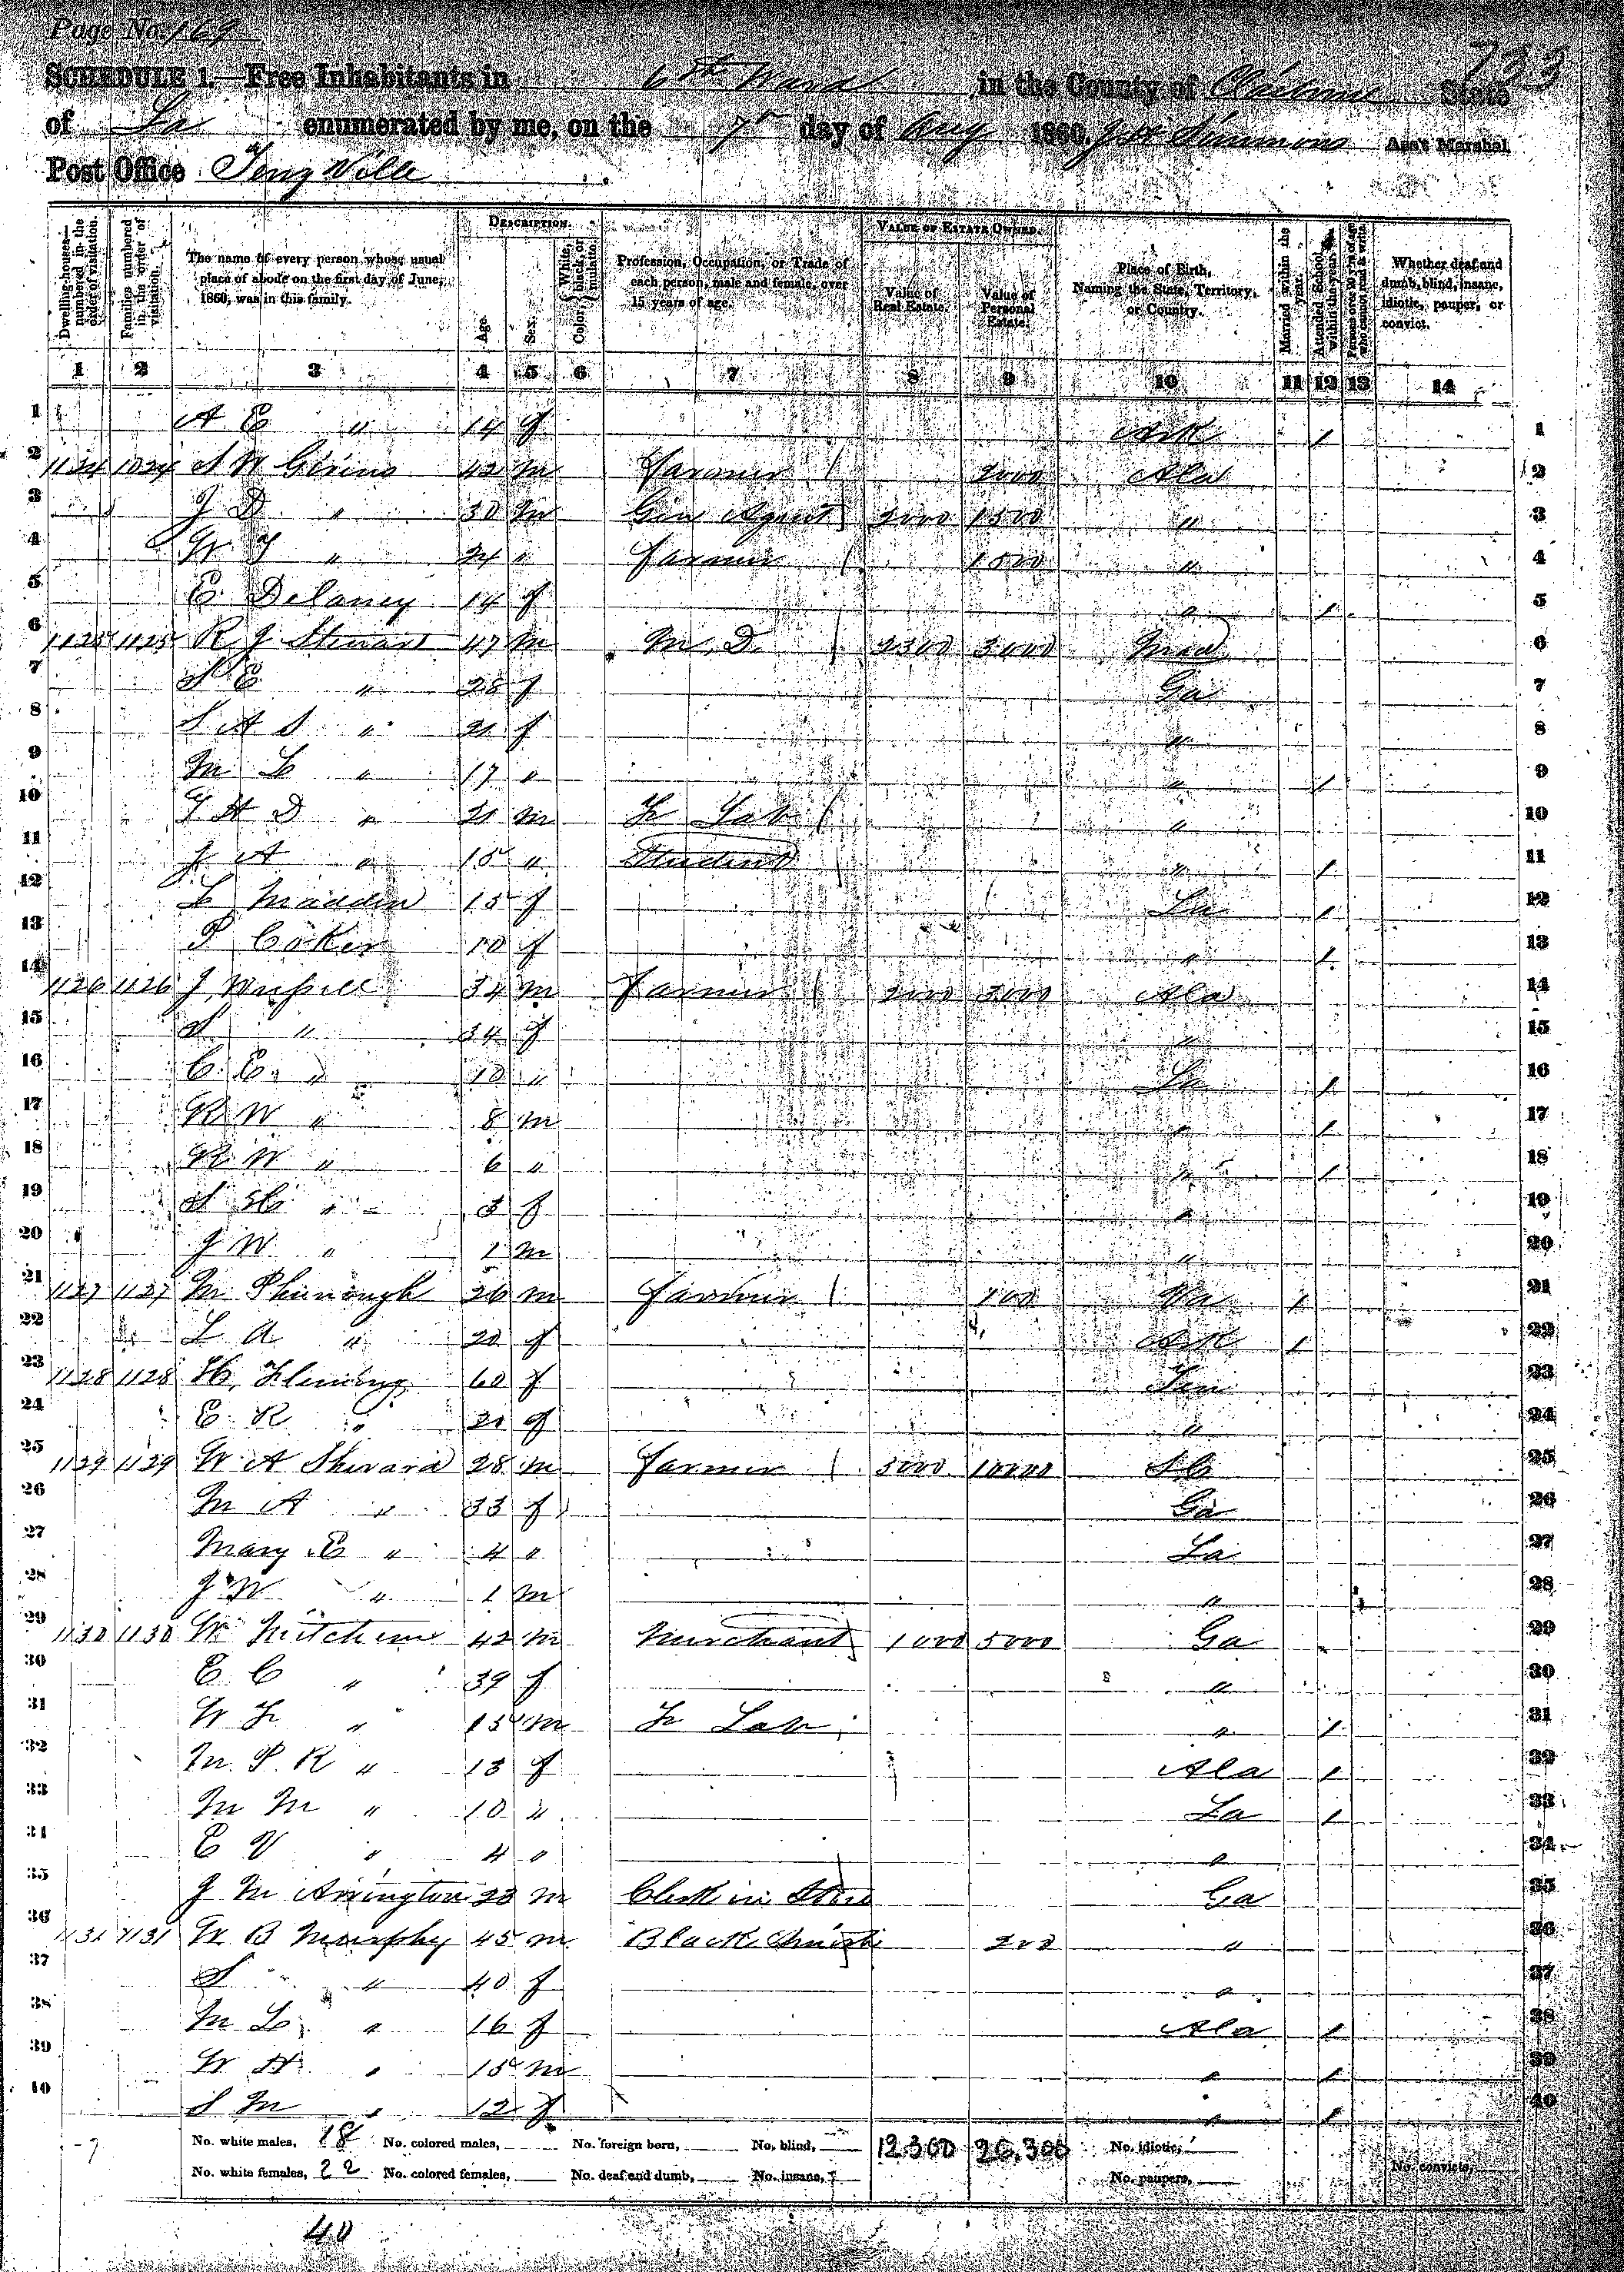 Page No. 169
733
SCHEDULE 1.—Free Inhabitants in 6th Ward in the County of Claiborne State
of La enumerated by me, on the 7th day of Aug 1860. Simmons Ass't Marshal
Post Office
DESCRIPTION. VALUE OF ESTATE OWNED.
Dwelling-houses—numbered in the order of visitation.
Families numbered in the order of visitation.
The name of every person whose usual place of abode on the first day of June, 1860, was in this family.
Age.
Sex.
Color, White, black, or mulatto.
Profession, Occupation, or Trade of each person, male and female, over 15 years of age.
Value of Real Estate.
Value of Personal Estate.
Place of Birth, Naming the State, Territory, or Country.
Married within the year.
Attended School within the year.
Persons over 20 y'rs of age who cannot read & write.
Whether deaf and dumb, blind, insane, idiotic, pauper, or convict.
1 2 3 4 5 6 7 8 9 10 11 12 13 14
1 A E " 14 f Ark / 1
2 1124 1124 42 m Farmer 2000 Ala 2
3 J D " 30 m Gin Agent 1500 " 3
4 W J " 24 " Farmer 1500 " 4
5 E Delaney 14 f " / 5
6 1125 1125 R J Stewart 47 m M D 3000 6
7 28 f Ga 7
8 S A S " 21 f " 8
9 M L " 17 " " / 9
10 J H D " 21 m F Lab " 10
11 J A " 15 " Student " / 11
12 L Maddin 15 f La / 12
13 P Coker 10 f " / 13
14 1126 1126 J 34 m Farmer Ala 14
15 S " 34 f " 15
16 C E " 10 " La / 16
17 R W " 8 m " / 17
18 W " 6 " " / 18
19 " 3 f " 19
20 J W " 1 m " 20
21 1127 1127 M 26 m Farmer 100 / 21
22 L A " 20 f Ark / 22
23 1128 1128 H Fleming 60 f Ten 23
24 E R " 21 f " 24
25 1129 1129 W A 28 m Farmer 3000 10000 S C 25
26 M A " 33 f Ga 26
27 Mary E " 4 " La 27
28 J W " 1 m " 28
29 1130 1130 W 42 m Merchant 1000 5000 Ga 29
30 E C " 39 f " 30
31 W F " 15 m F Lab " / 31
32 M P R " 13 f Ala / 32
33 M M " 10 " La / 33
34 E V " 4 " " 34
35 J M Arrington 23 m Clerk in Store Ga 35
36 1131 1131 W B Murphy 45 m Black Smith 200 " 36
37 S " 40 f " 37
38 M L " 16 f Ala / 38
39 W H " 15 m " / 39
40 S M " 12 f " / 40
No. white males, 18 No. colored males, No. foreign born, No. blind, 12.300 26.300 No. idiotic,
No. white females, 22 No. colored females, No. deaf and dumb, No. insane, No. paupers, No. convicts,
40